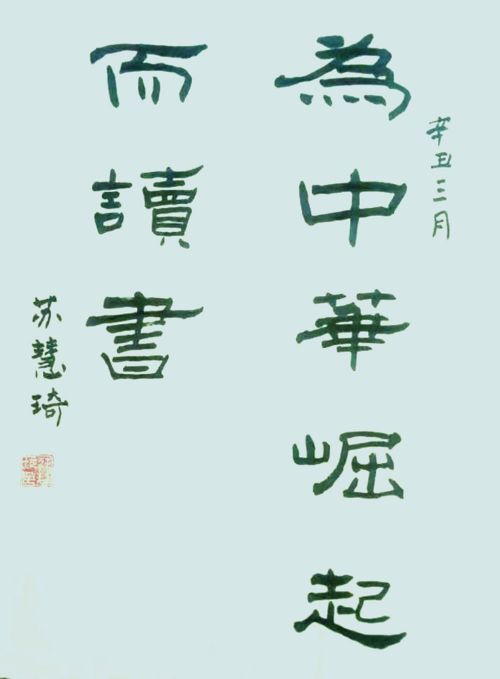 辛丑三月
為中華崛起
而讀書
苏慧琦